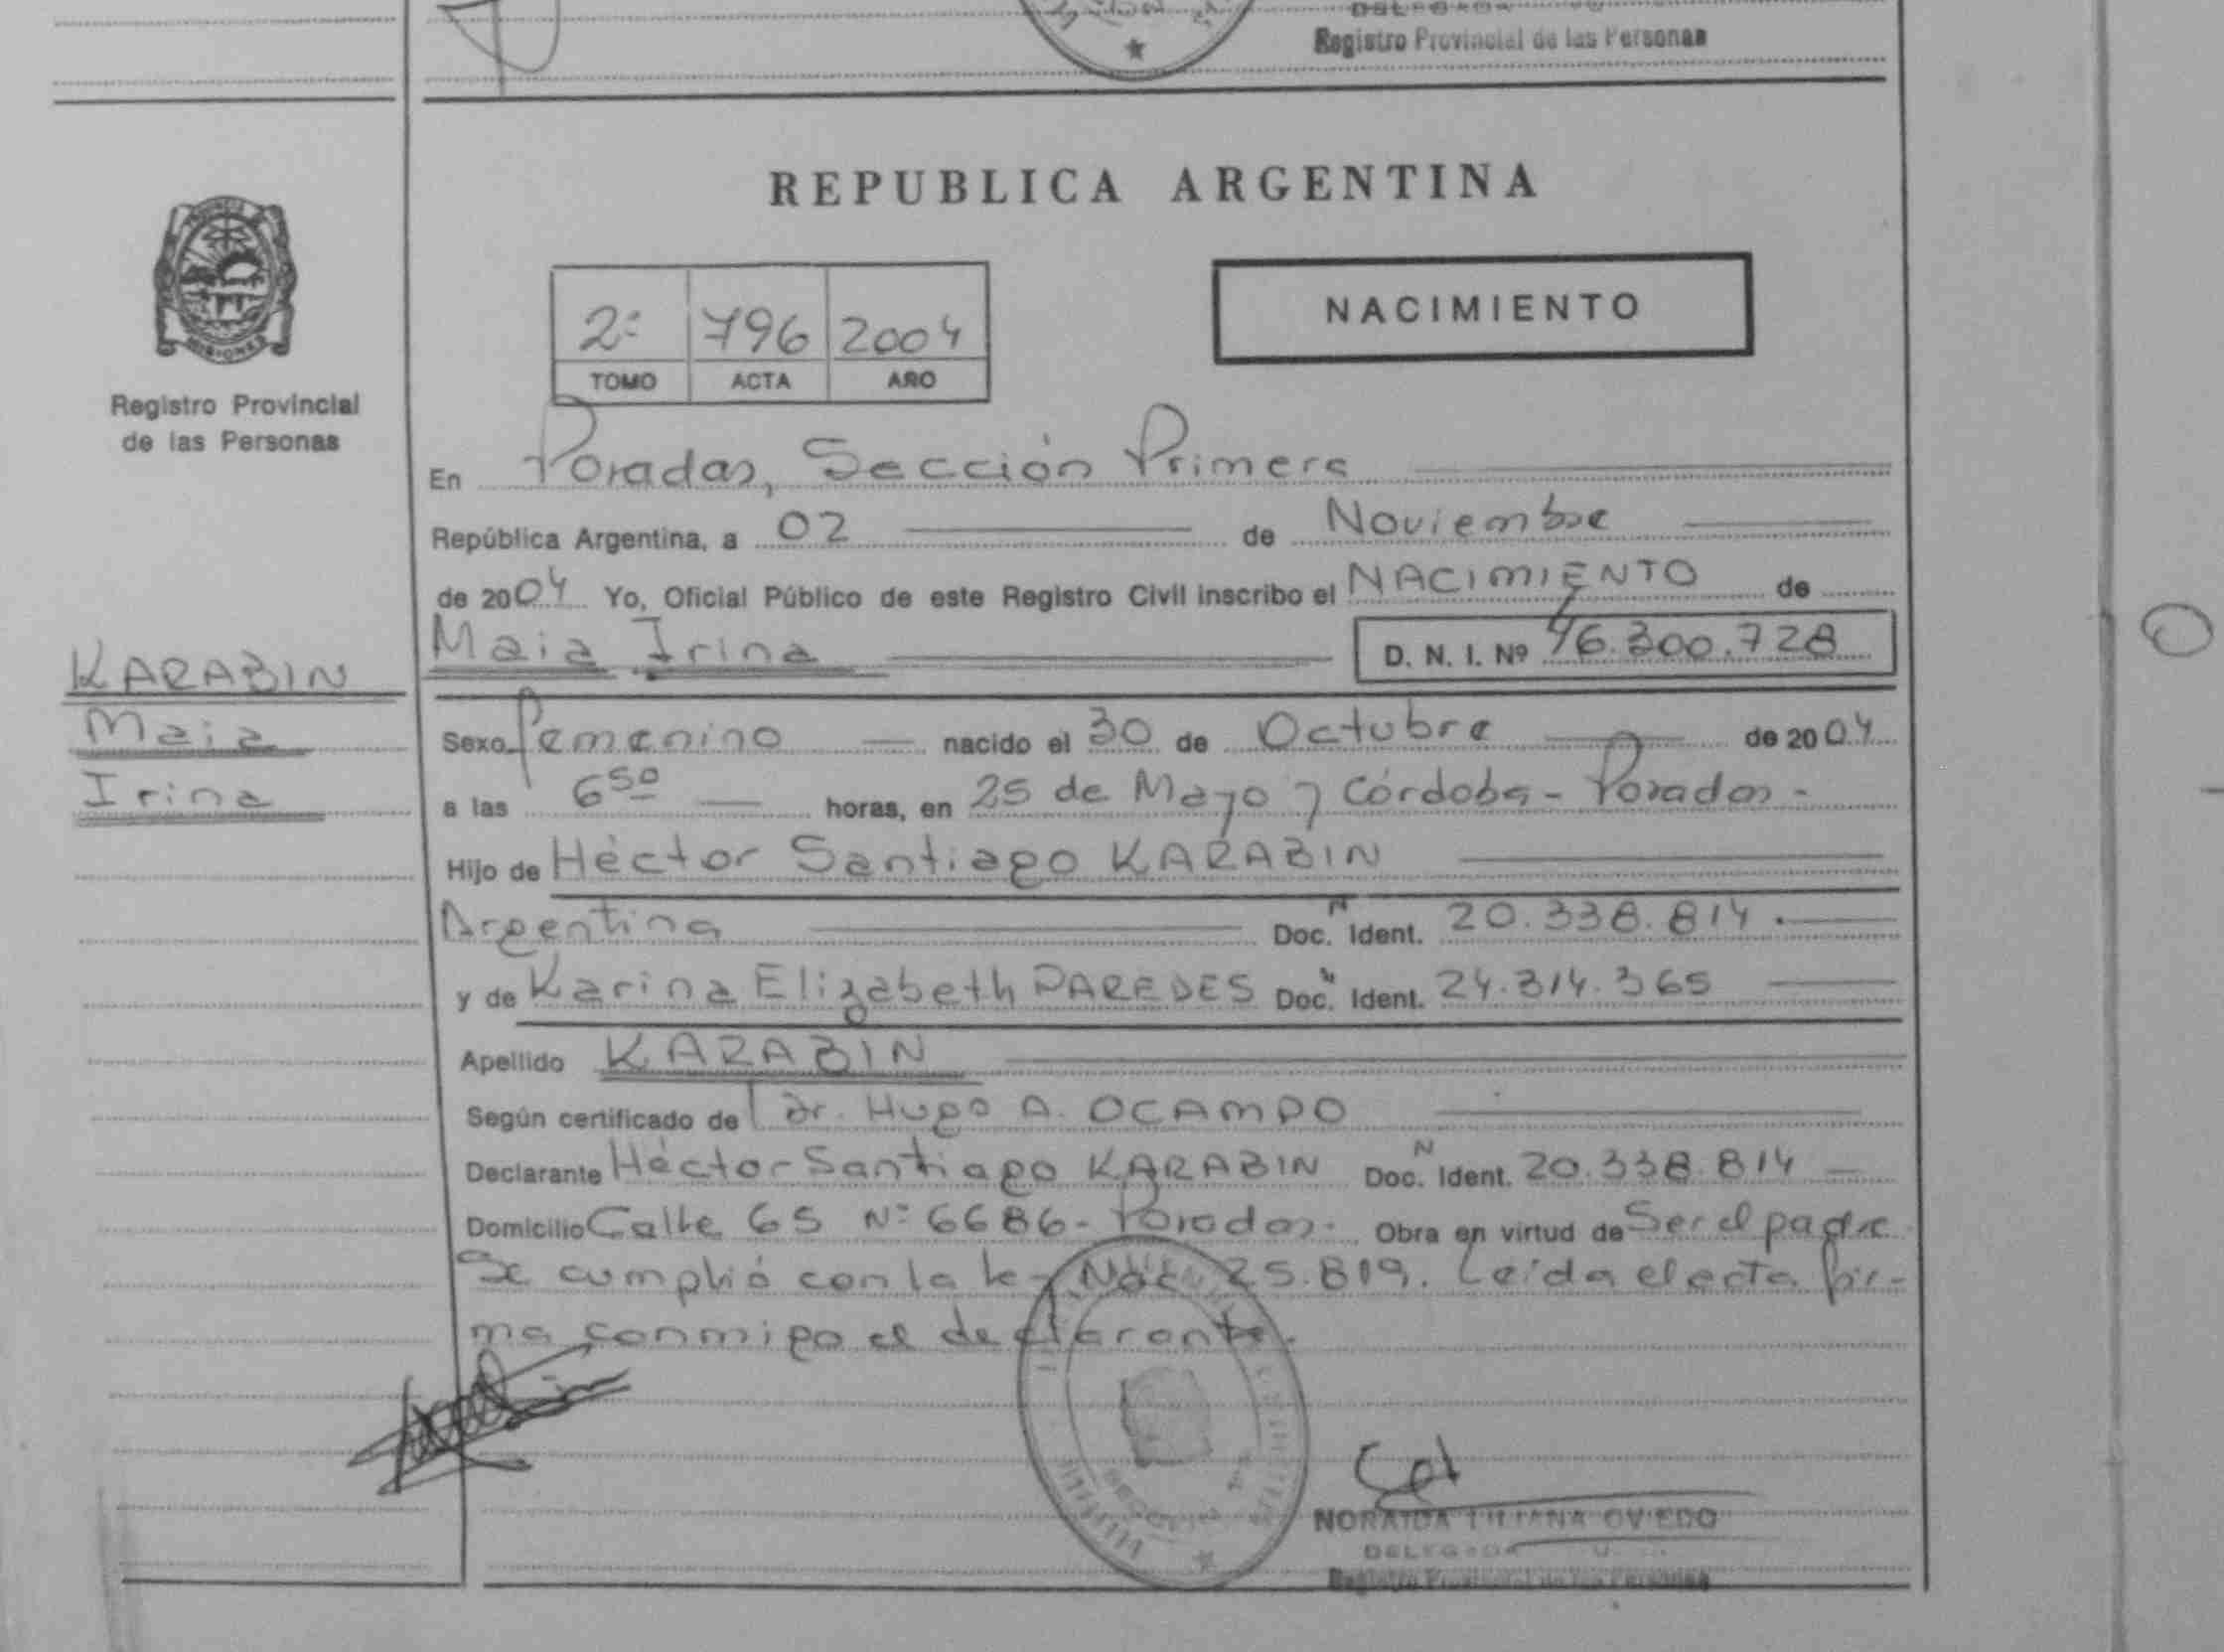 Registro Provincial de las Personas
REPUBLICA ARGENTINA
MISIONES
Registro Provincial
de las Personas
2º 796 2004
TOMO ACTA AÑO
NACIMIENTO
En Posadas, Sección Primera
República Argentina, a 02 de Noviembre
de 2004 Yo, Oficial Público de este Registro Civil inscribo el NACIMIENTO de
Maia Irina D. N. I. Nº 46.300.728
KARABIN
Maia
Irina
Sexo femenino nacido el 30 de Octubre de 2004
a las 6 50 horas, en 25 de Mayo y Córdoba - Posadas -
Hijo de Héctor Santiago KARABIN
Argentina Doc. N Ident. 20.338.814.
y de Karina Elizabeth PAREDES Doc. N Ident. 24.314.365
Apellido KARABIN
Según certificado de Dr. Hugo A. OCAMPO
Declarante Héctor Santiago KARABIN Doc. N Ident. 20.338.814
Domicilio Calle 65 Nº 6686 - Posadas. Obra en virtud de Ser el padre
Se cumplió con la ley Nac. 25.819. Leída el acta fir-
ma conmigo el declarante.
NORAIDA LILIANA OVIEDO
DELEGADA
Registro Provincial de las Personas